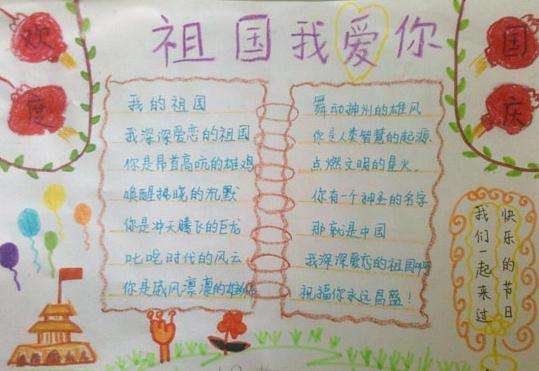 祖国我爱你
欢度
国庆
我的祖国
我深深爱恋的祖国
你是昂首高吭的雄鸡
唤醒拂晓的沉默
你是冲天腾飞的巨龙
叱咤时代的风云
你是威风凛凛的雄师
舞动神州的雄风
你是人类智慧的起源
点燃文明的星火
你有一个神圣的名字
那就是中国
我深深爱恋的祖国啊
祝福你永远昌盛！
快乐的节日
我们一起来过